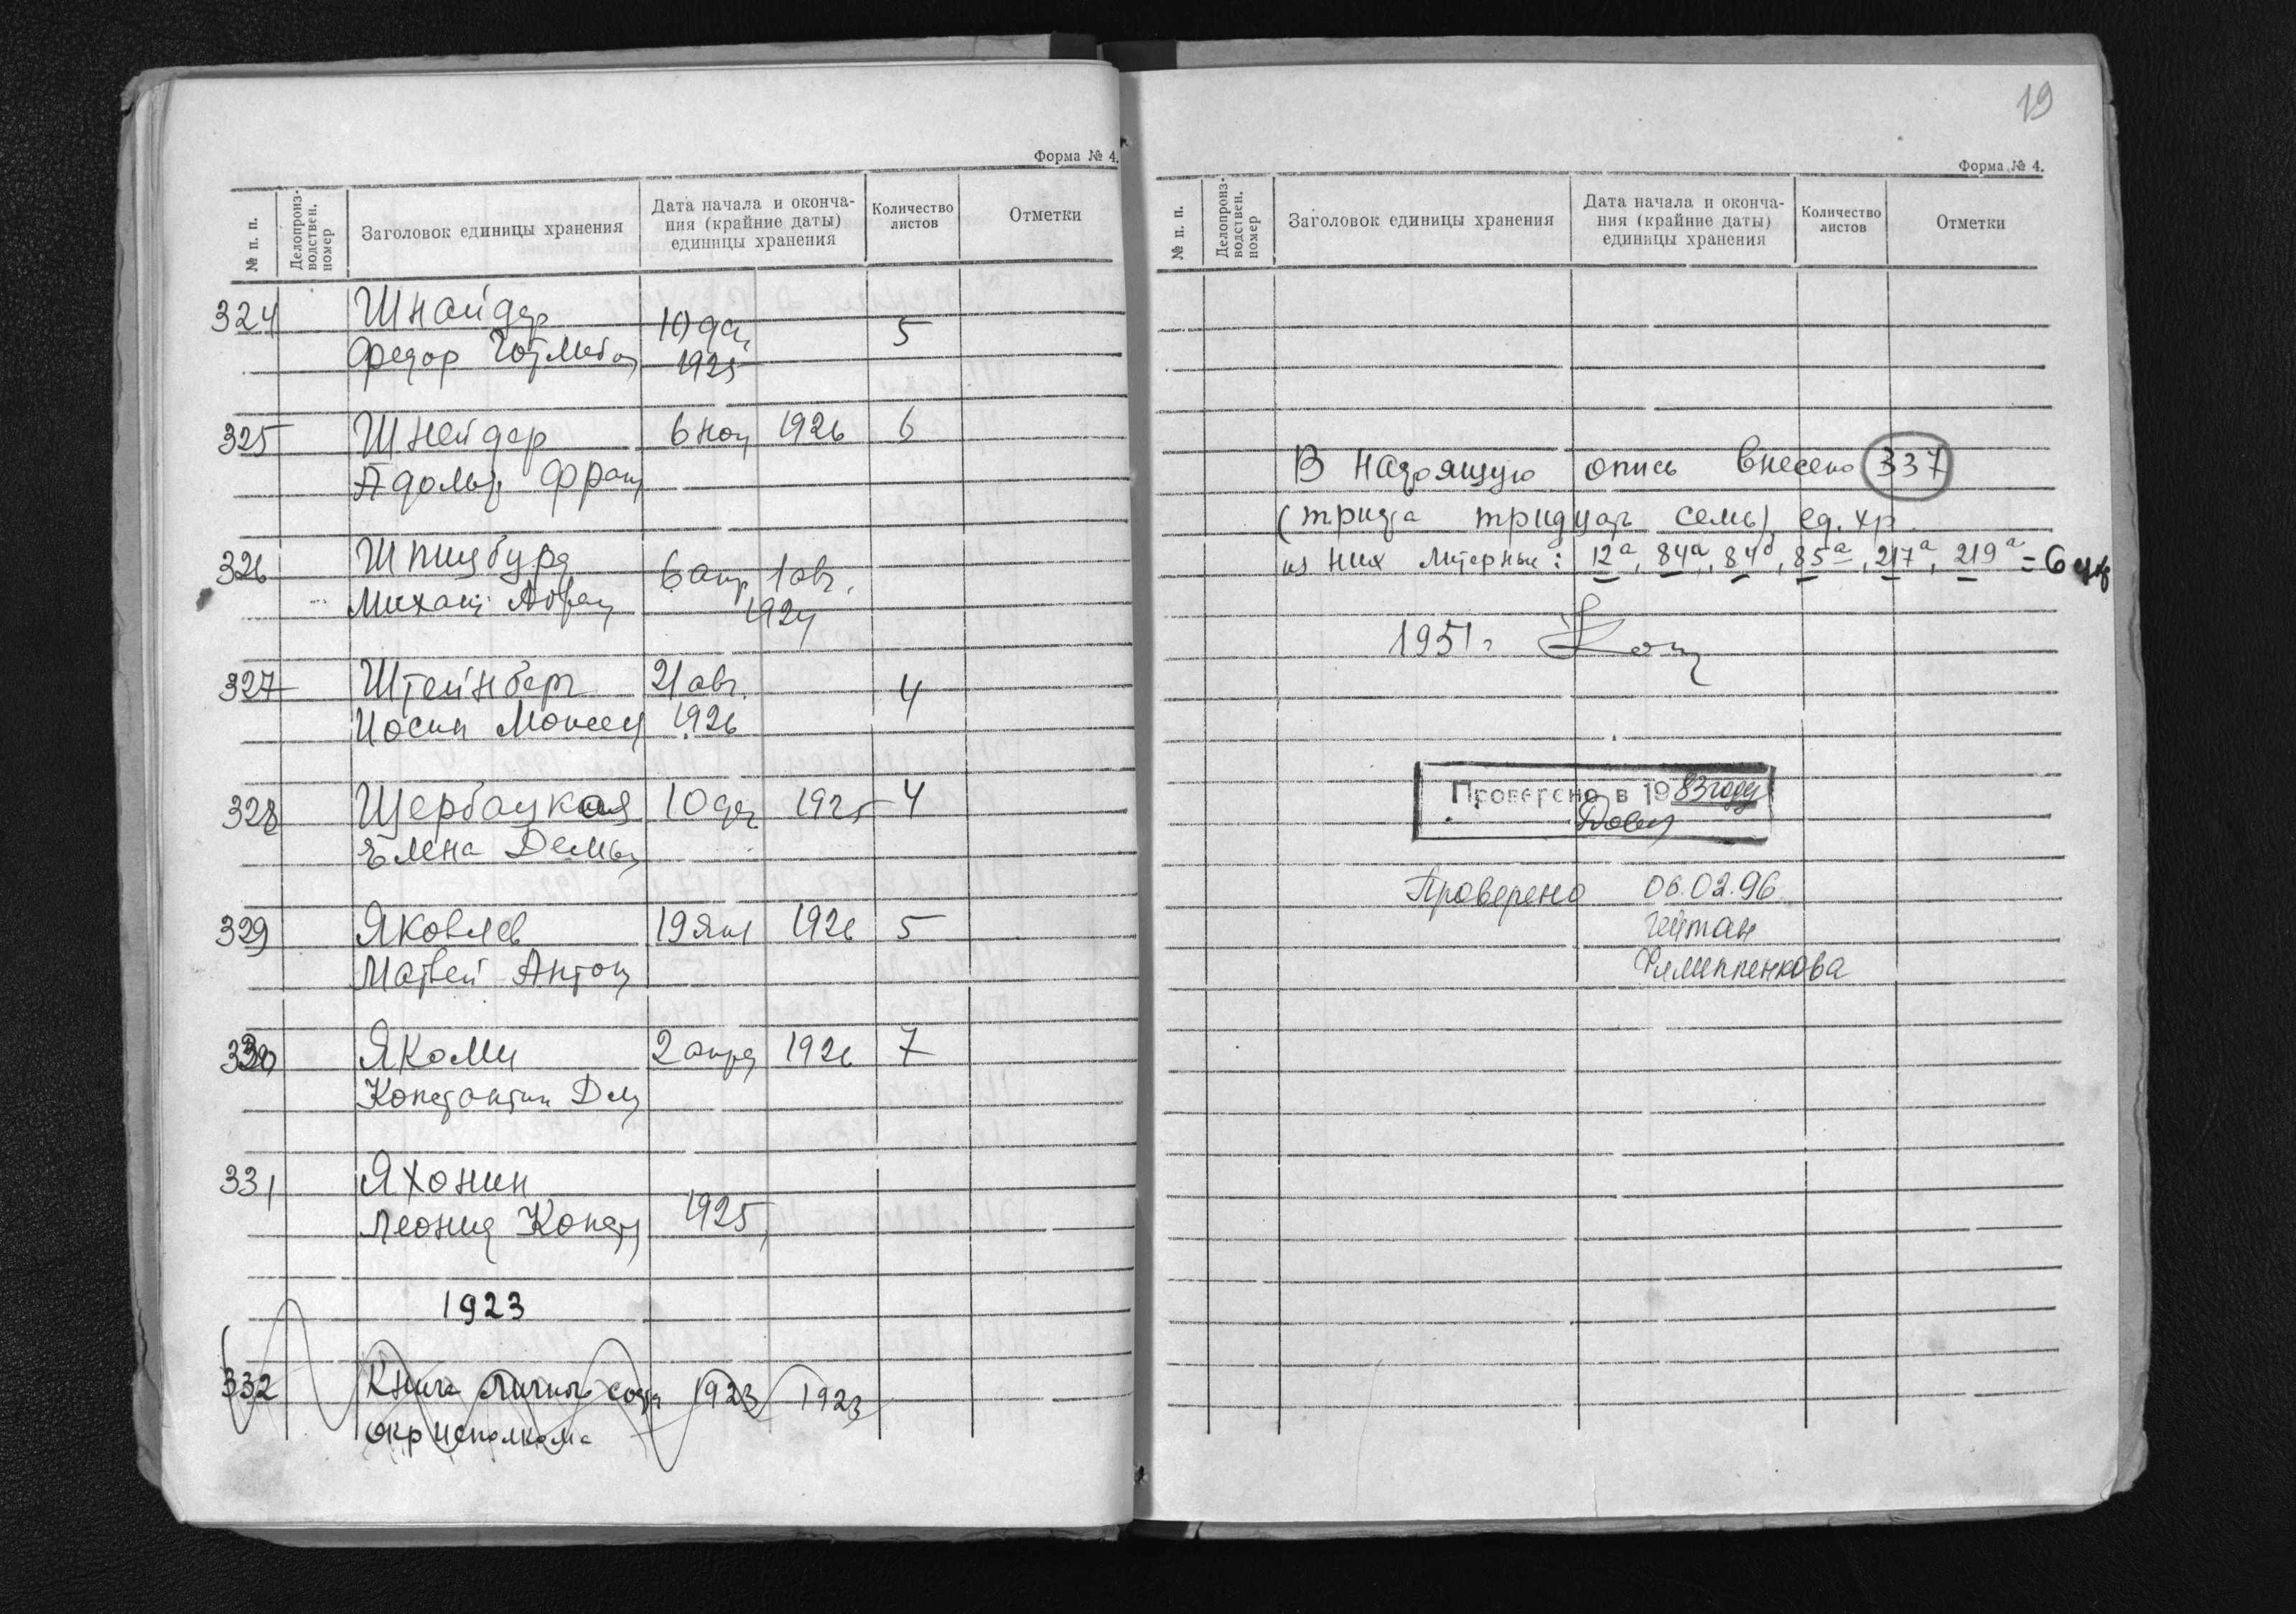 Форма № 4.
№ п. п.
Делопроиз-
водствен.
номер
Заголовок единицы хранения
Дата начала и оконча-
ния (крайние даты)
единицы хранения
Количество
листов
Отметки
324 Шнайдер 10 дек 5
Федор Готлибо 1925
325 Шнейдер 6 ноя 1926 6
Адольф Франц
326 Шпицбург 6 апр 1 авг.
Михаил Абрам 1924
327 Штейнберг 21 авг. 4
Иосип Моисее 1926
328 Щербацкая 10 дек 1925 4
Елена Демья
329 Яковлев 19 янв 1926 5
Матвей Антон
330 Якоми 2 апре 1926 7
Константин Дм
331 Яхонин
Леонид Конст 1925
1923
332 Книга личного сост 1923 1923
окрисполкома
19
Форма № 4.
№ п. п.
Делопроиз-
водствен.
номер
Заголовок единицы хранения
Дата начала и оконча-
ния (крайние даты)
единицы хранения
Количество
листов
Отметки
В настоящую опись внесено 337
(триста тридцать семь) ед. хр.
из них литерные: 12а, 84а, 84б, 85а, 217а, 219а = 6
1951 г
Проверено в 1983 году
Проверено 06.02.96.
Гейман
Филиппенкова